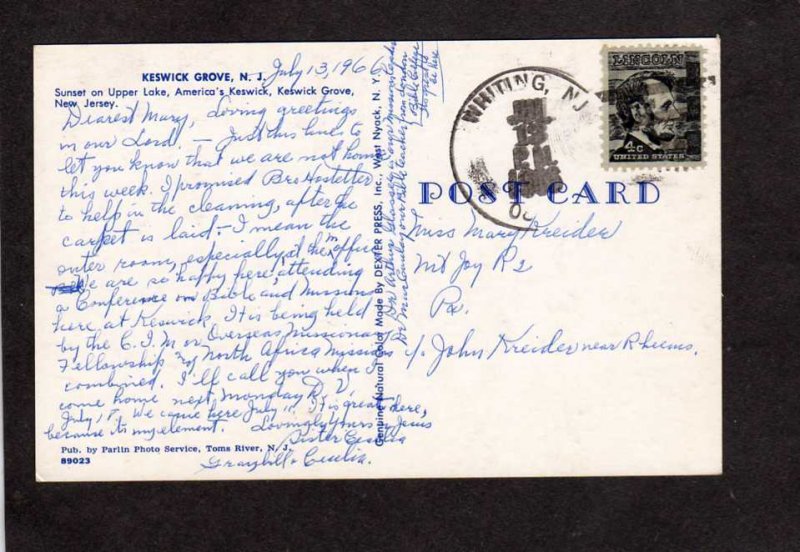 KESWICK GROVE, N. J.
July 13, 1966
Sunset on Upper Lake, America's Keswick, Keswick Grove,
New Jersey.
Dearest Mary, Loving greetings
in our Lord, - Just this lines to
let you know that we are not home
this week. I promised Bro Hostetter
to help in the cleaning, after the
carpet is laid - I mean the
outer room, especially, at the office
We are so happy here, attending
a Conference on Bible and Missions
here at Keswick. It is being held
by the C. I. M or Overseas Missionary
Fellowship and North Africa Missions
combined. I'll call you when I
come home next Monday
July 18. We came here July 11. It is great here,
because its my element. Lovingly Yours in Jesus
Sister Cecelia
Graybill & Cecelia.
Pub. by Parlin Photo Service, Toms River, N. J.
89023
Genuine Natural Color Made By DEXTER PRESS, Inc., West Nyack, N. Y.
Dr Arthur Glasser is our missions speaker
our Bible teacher from London
Bible College
to be here
WHITING, NJ
13
PM
LINCOLN
4c
UNITED STATES
POST CARD
Miss Mary Kreider
Mt Joy R2
Pa.
c/o John Kreider near Rheems.